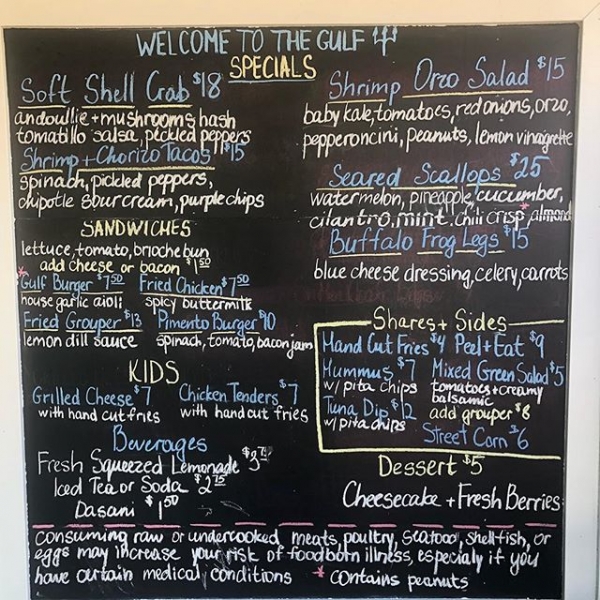 WELCOME TO THE GULF
SPECIALS
Soft Shell Crab $18
andoullie + mushrooms hash
tomatillo salsa, pickled peppers
Shrimp + Chorizo Tacos $15
spinach, pickled peppers,
chipotle sour cream, purple chips
SANDWICHES
lettuce, tomato, brioche bun
add cheese or bacon $1.50
*Gulf Burger $7.50 Fried Chicken $7.50
house garlic aioli spicy buttermilk
Fried Grouper $13 Pimento Burger $10
lemon dill sauce spinach, tomato, bacon jam
KIDS
Grilled Cheese $7 Chicken Tenders $7
with hand cut fries with hand cut fries
Beverages
Fresh Squeezed Lemonade $3.75
Iced Tea or Soda $2.75
Dasani $1.50
Shrimp Orzo Salad $15
baby kale, tomatoes, red onions, orzo,
pepperoncini, peanuts, lemon vinagrette
Seared Scallops $25
watermelon, pineapple, cucumber,
cilantro, mint, chili crisp*, almond
Buffalo Frog Legs $15
blue cheese dressing, celery, carrots
Shares + Sides
Hand Cut Fries $4 Peel + Eat $9
Hummus $7 Mixed Green Salad $5
w/ pita chips tomatoes + creamy
balsamic
Tuna Dip $12 add grouper $8
w/ pita chips
Street Corn $6
Dessert $5
Cheesecake + Fresh Berries
consuming raw or undercooked meats, poultry, seafood, shellfish, or
eggs may increase your risk of foodborn illness, especialy if you
have certain medical conditions * contains peanuts